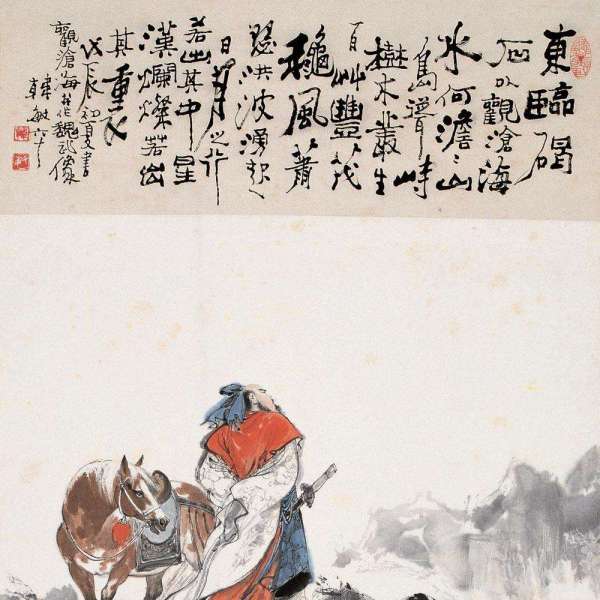 東臨碣
石以觀滄海
水何澹〻山
島竦峙
樹木叢生
百艸豐茂
龝風蕭
瑟洪波湧起
日月之行
若出其中星
漢爛燦若出
其裏
戊辰初夏書
觀滄海并魏武像
韓敏